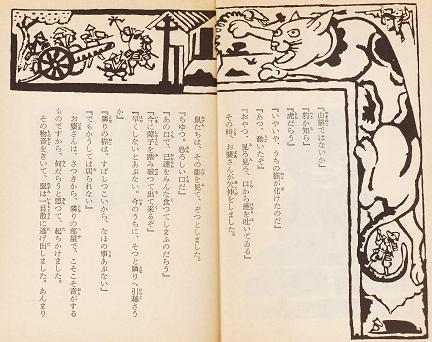 『山猫ではないか』
『豹か知ら』
『虎だらう』
『いやいや、うちの猫が化けたのだ』
『あつ、動いたぞ』
『おやつ、見ろ見ろ、口から煙を吐いてゐる』
その時、お婆さんが欠伸をしました。
鼠たちは、その影を見て、ぎよつとしました。
『らゆつ。恐ろしい口だ』
『あの口で、己達をみんな食べてしまふのだらう』
『今に障子を踏み破つて出て来るぞ』
『早くしないとあぶない。今のうちに、そつと隣りへ引越さう
か』
『隣りの猫は、すばしつこいから、なほの事あぶない』
『でもかうしては居られない』
お婆さんは、さつきから、隣りの部屋で、こそこそ音がする
ものですから、何だらうと思つて、起ちかけました。
その物音をきいて、鼠は一目散に逃げ出しました。あんまり